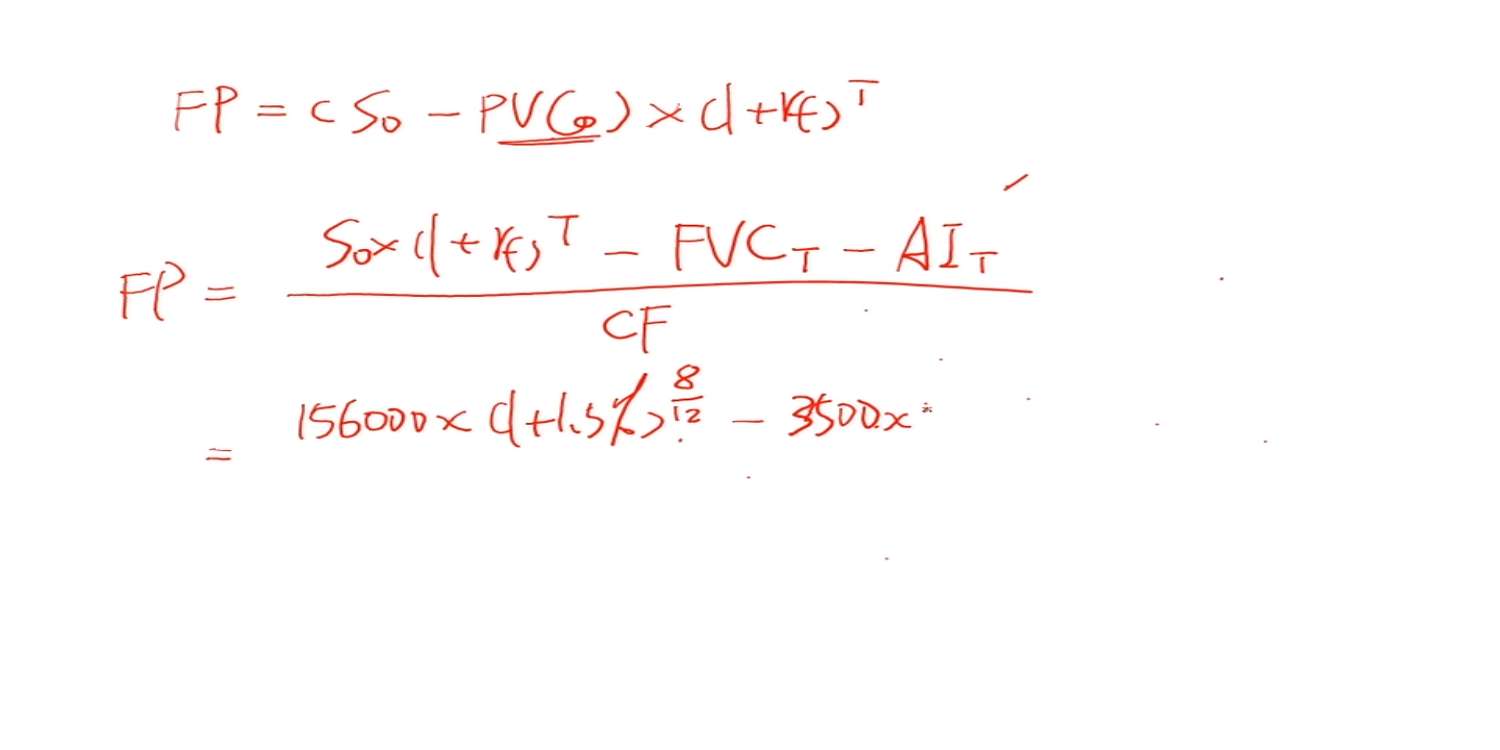 FP = (S₀ - PVC₀) × (1+rf)ᵀ
FP = S₀×(1+rf)ᵀ - FVC_T - AI_T
CF
= 156000× (1+1.5%)^8/12 - 3500×